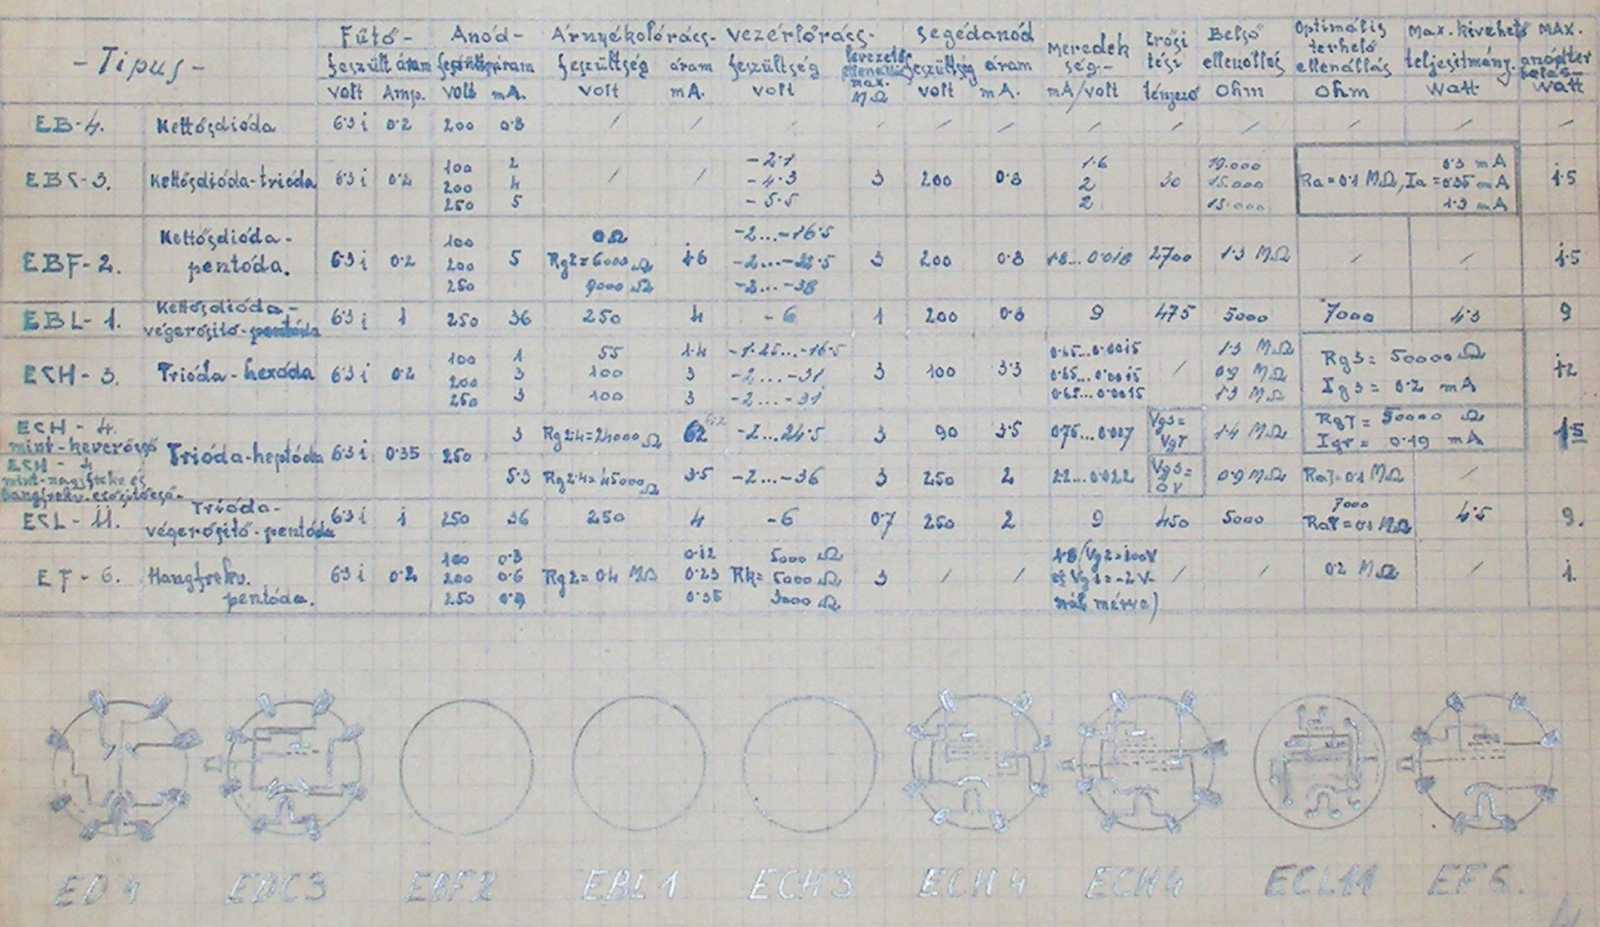 - Tipus -
Fűtő-
feszült. áram
volt Amp.
Anód-
feszültség áram
volt mA.
Árnyékolórács-
feszültség áram
volt mA.
Vezérlőrács-
feszültség
volt
levezetős
ellenállás
max.
MΩ
Segédanód
feszültség áram
volt mA.
Meredek
ség.-
mA/volt
Erősi
tési
tényező
Belső
ellenállás
Ohm
Optimális
terhelő
ellenállás
Ohm
Max. kivehető
teljesítmény.
Watt
MAX.
Watt
EB-4. Kettősdióda 6·3 i 0·2 200 0·8 / / / / / / / / / / / /
EBC-3. Kettősdióda-trióda 6·3 i 0·2 / / 3 200 0·8 30 Ra=0·1 MΩ, Ia= 1·5
100 2 -2·1 1·6 19.000 0·3 mA
200 4 -4·3 2 15.000 0·35 mA
250 5 -5·5 2 15.000 1·3 mA
EBF-2. Kettősdióda-
pentóda. 6·3 i 0·2 5 1·6 3 200 0·8 1·8...0·018 2700 1·3 MΩ / / 1·5
100 0Ω -2...-16·5
200 Rg2=6000 Ω -2...-32·5
250 9000 Ω -2...-38
EBL-1. Kettősdióda-
végerősítő-pentóda 6·3 i 1 250 36 250 4 -6 1 200 0·8 9 475 5000 7000 4·3 9
ECH-3. Trióda-hexóda 6·3 i 0·2 3 100 3·3 / 1·2
100 1 55 1·4 -1·25...-16·5 0·65...0·0015 1·3 MΩ Rg3= 50000 Ω
200 3 100 3 -2...-31 0·65...0·0015 0·9 MΩ Ig3= 0·2 mA
250 3 100 3 -2...-31 0·65...0·0015 1·3 MΩ
ECH-4.
mint-keverőcső Trióda-heptóda 6·3 i 0·35 250 3 Rg2·4=24000 Ω 62 -2...24·5 3 90 3·5 0·75...0·007 Vg3=
VgT 1·4 MΩ RgT= 50000 Ω
IgT= 0·19 mA 1·5
ECH-4
5·3 Rg2·4=45000 Ω 3·5 -2...-36 3 250 2 2·2...0·022 Vg3=
0V 0·9 MΩ RaT=0·1 MΩ /
ECL-11. Trióda-
végerősítő-pentóda 6·3 i 1 250 36 250 4 -6 0·7 250 2 9 450 5000 7000
RaT=0·1 MΩ 4·5 9.
EF-6. Hangfrekv.
pentóda. 6·3 i 0·2 Rg2=0·4 MΩ Rk= 3 / / / / 0·2 MΩ / 1.
100 0·3 0·12 5000 Ω 1·8 (Vg2=100V
200 0·6 0·23 5000 Ω és Vg1=-2 V-
250 0·9 0·35 3000 Ω nál mérve)
EB4 EBC3 EBF2 EBL1 ECH3 ECH4 ECH4 ECL11 EF6.